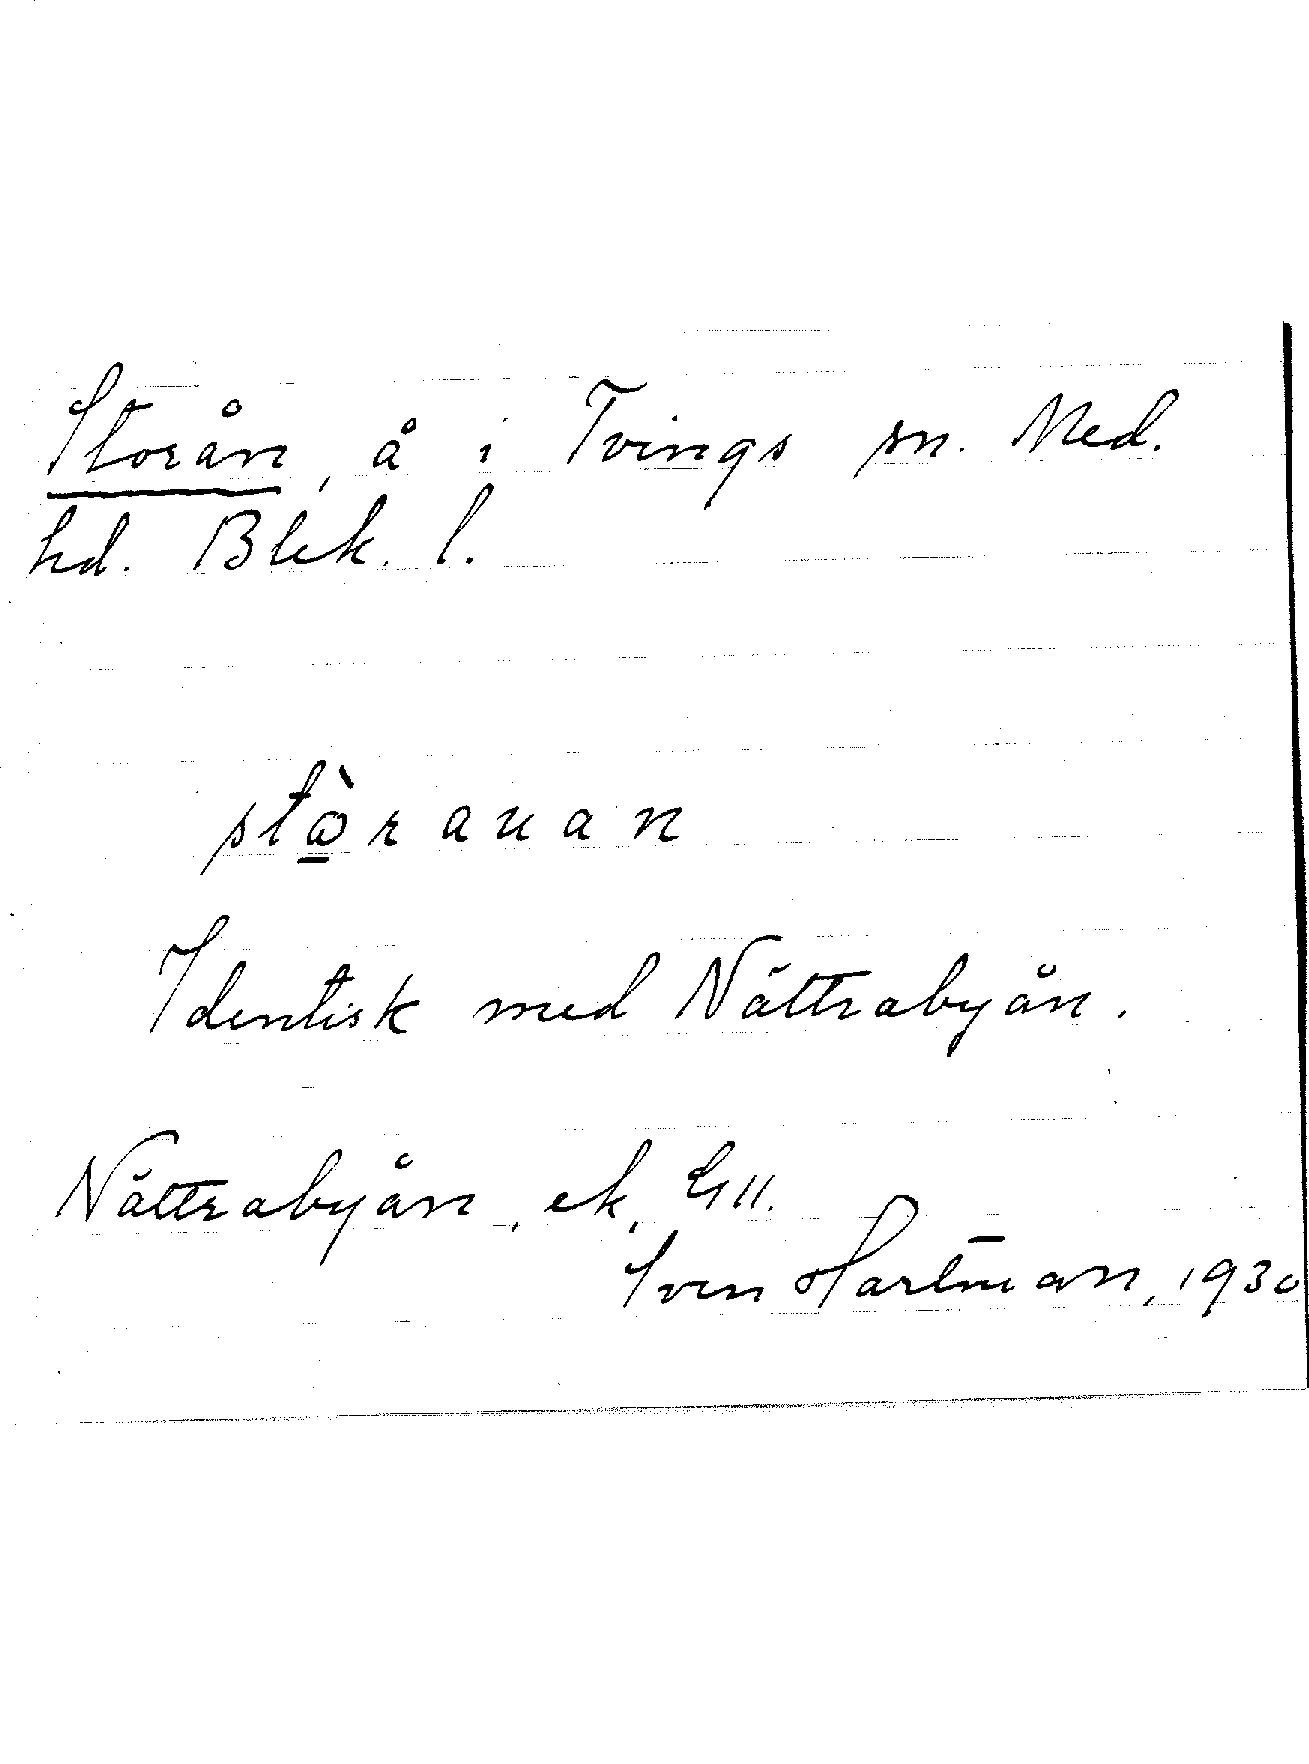 Storån, å i Tvings sn. Med.
hd. Blek. l.
stὼ̲rauan
Identisk med Nättrabyån.
Nättrabyån, ek,
Sven Hartman, 1930